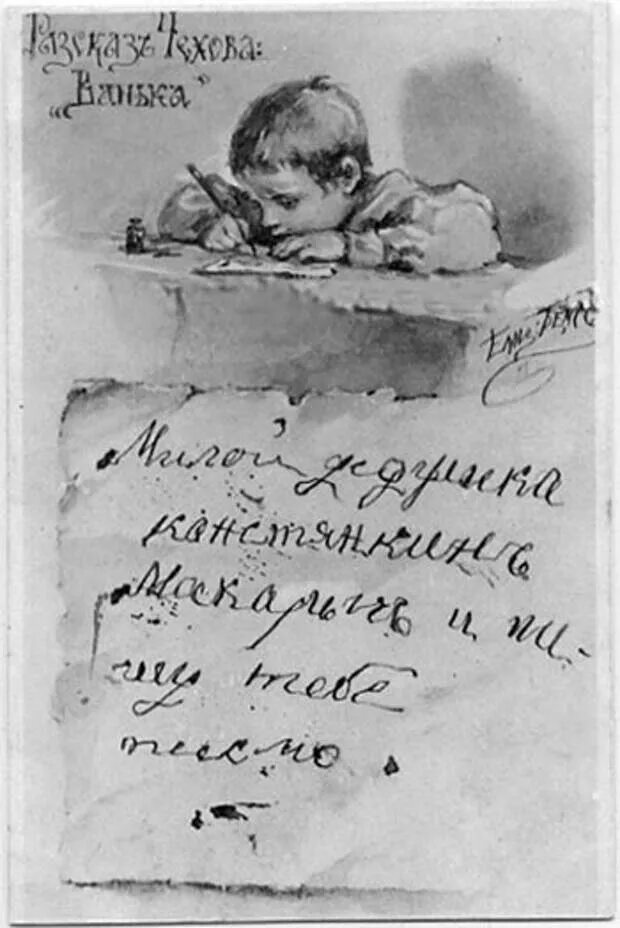 Разсказъ Чехова:
„Ванька"
Елис. Бемъ
Милой дедушка
канстянкинъ
Макарычъ и пи-
шу тебѣ
писмо.